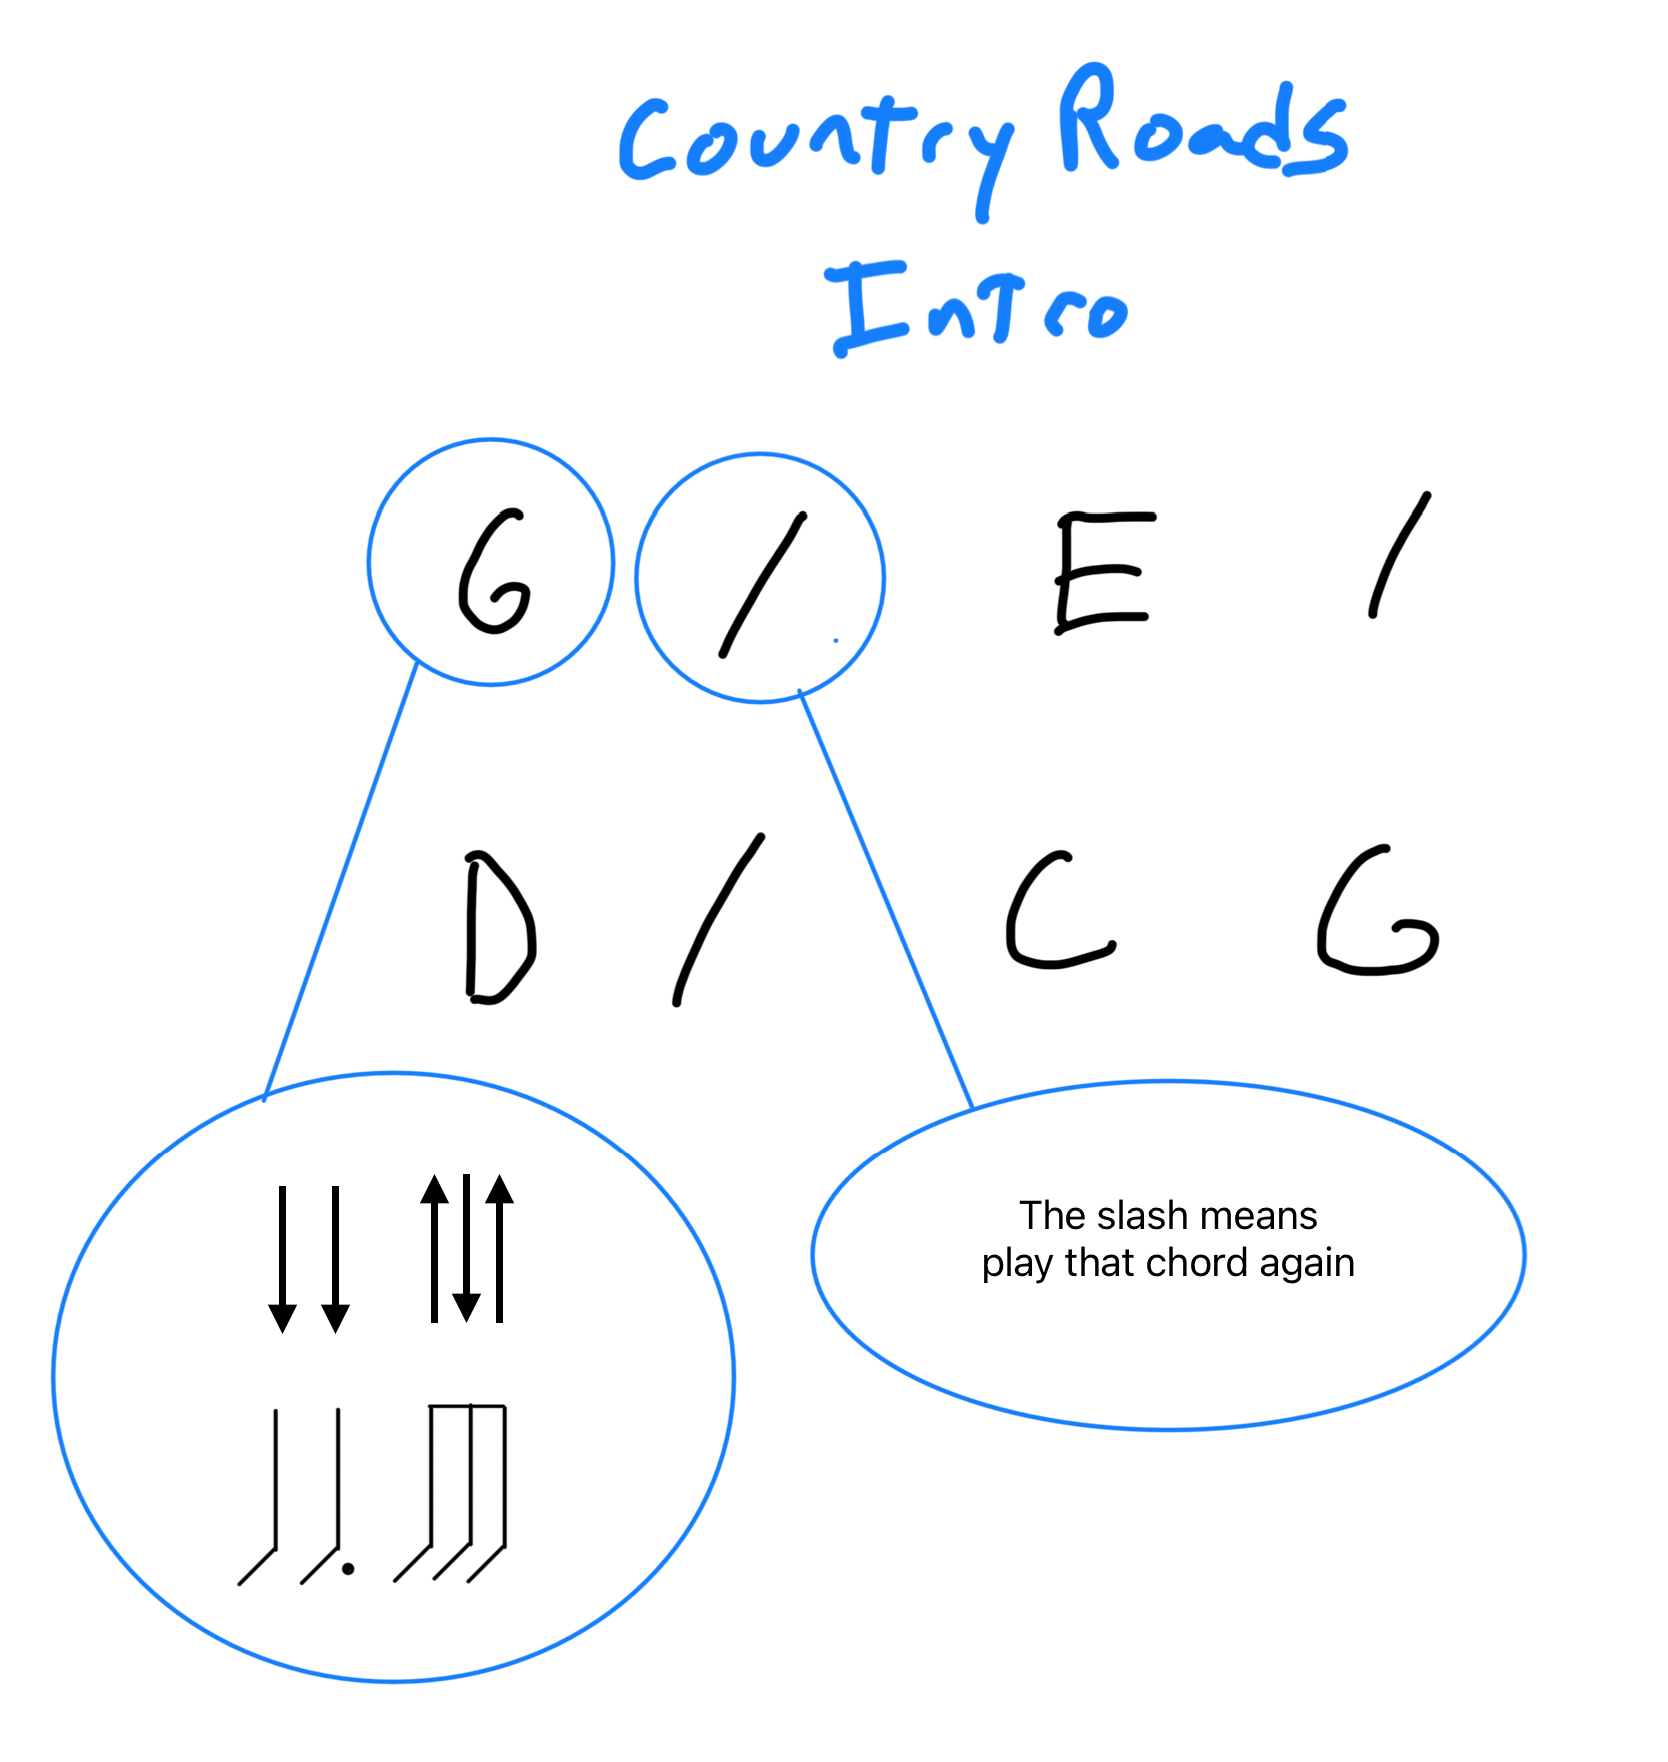 Country Roads
Intro
G / E /
D / C G
The slash means
play that chord again